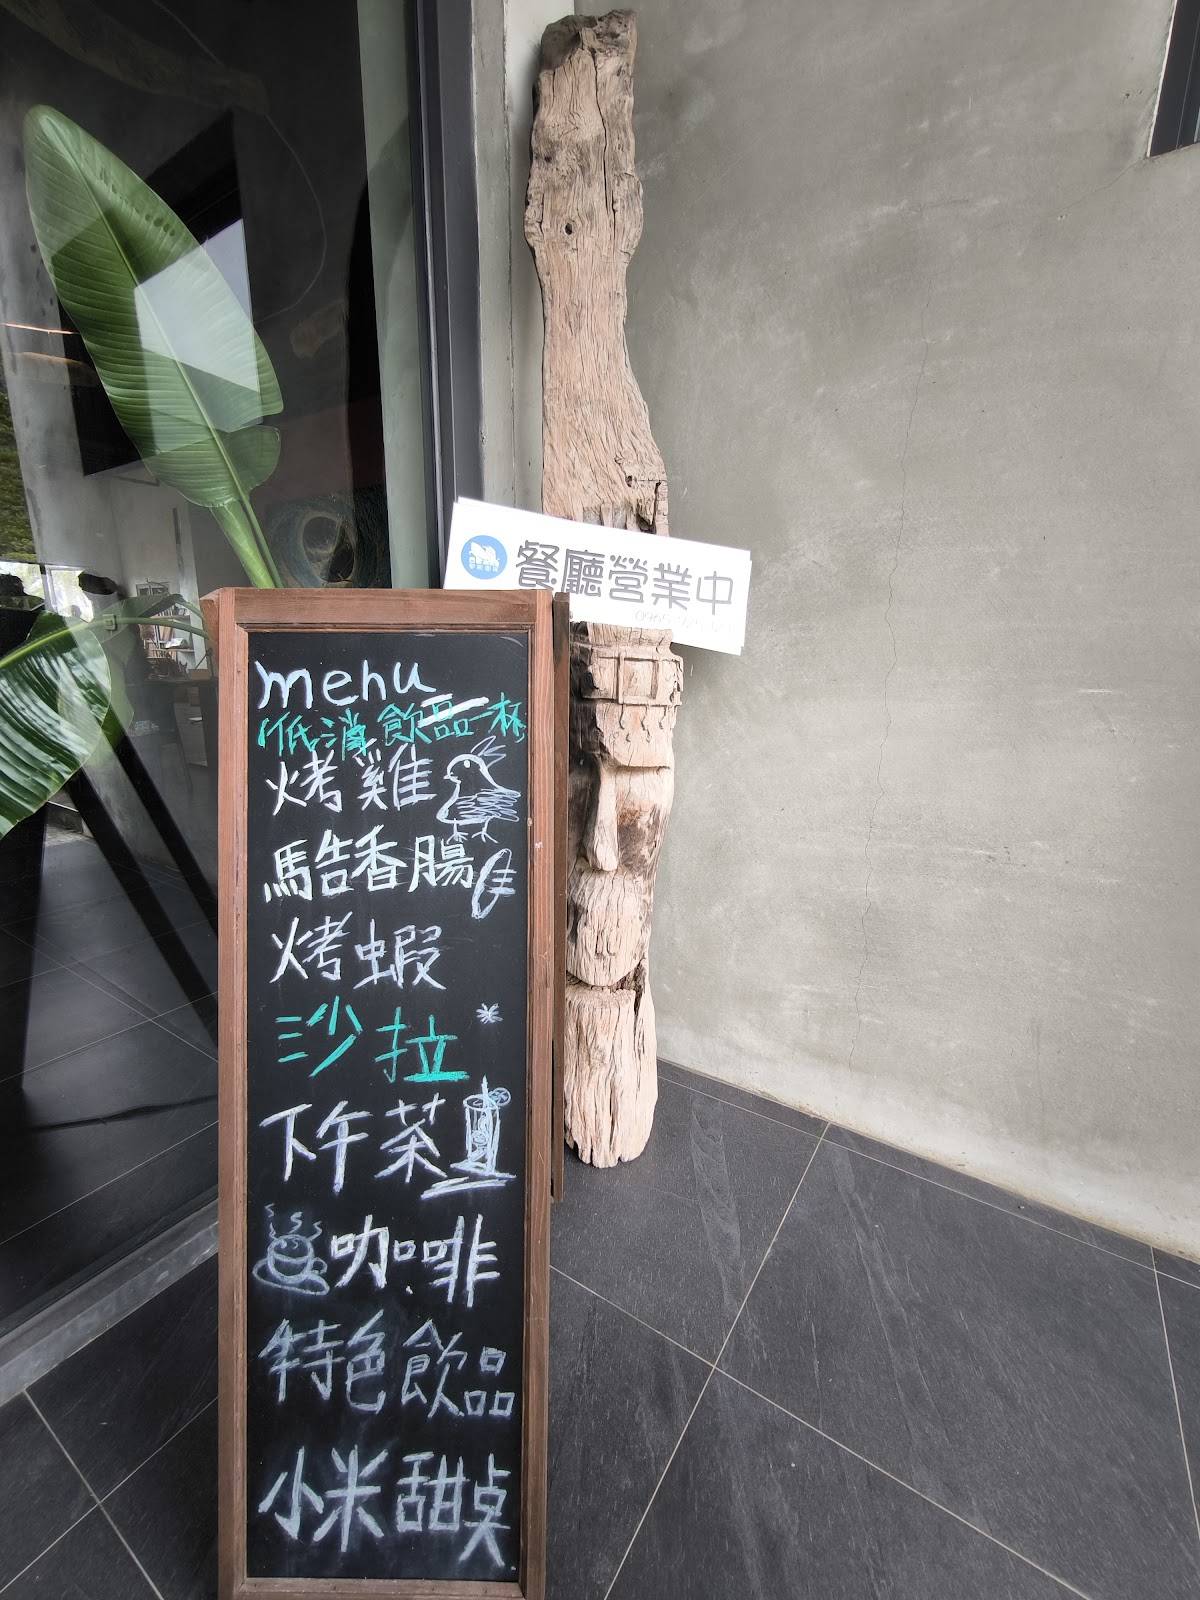 餐廳營業中
menu
低消飲品一杯
烤雞
馬告香腸
烤蝦
沙拉
下午茶
咖啡
特色飲品
小米甜桌